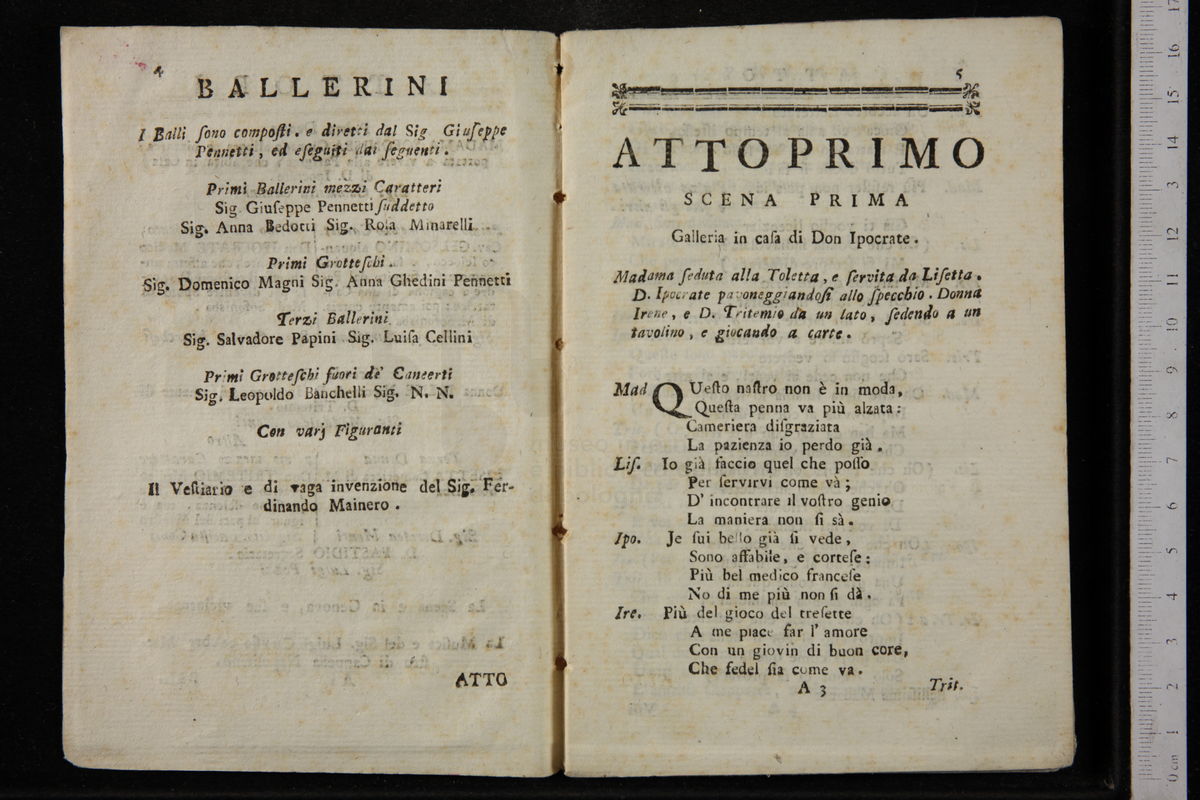 4
BALLERINI
I Balli ſono compoſti. e diretti dal Sig Giuſeppe
Pennetti, ed eſeguiti dai ſeguenti.
Primi Ballerini mezzi Caratteri
Sig. Giuſeppe Pennetti ſuddetto
Sig. Anna Bedotti Sig. Roſa Minarelli
Primi Grotteſchi
Sig. Domenico Magni Sig. Anna Ghedini Pennetti
Terzi Ballerini
Sig. Salvadore Papini Sig. Luiſa Cellini
Primi Grotteſchi fuori de' Concerti
Sig. Leopoldo Banchelli Sig. N. N.
Con varj Figuranti
Il Veſtiario e di vaga invenzione del Sig. Fer-
dinando Mainero.
ATTO
5
ATTO PRIMO
SCENA PRIMA
Galleria in caſa di Don Ipocrate.
Madama ſeduta alla Toletta, e ſervita da Liſetta.
D. Ipocrate pavoneggiandoſi allo ſpecchio. Donna
Irene, e D. Tritemio da un lato, ſedendo a un
tavolino, e giocando a carte.
Mad QUeſto naſtro non è in moda,
Queſta penna va più alzata:
Cameriera diſgraziata
La pazienza io perdo già.
Liſ. Io già faccio quel che poſſo
Per ſervirvi come và;
D' incontrare il voſtro genio
La maniera non ſi sà.
Ipo. Je ſui bello già ſi vede,
Sono affabile, e corteſe:
Più bel medico franceſe
No di me più non ſi dà.
Ire. Più del gioco del treſette
A me piace far l' amore
Con un giovin di buon core,
Che fedel ſia come va.
A 3
Trit.